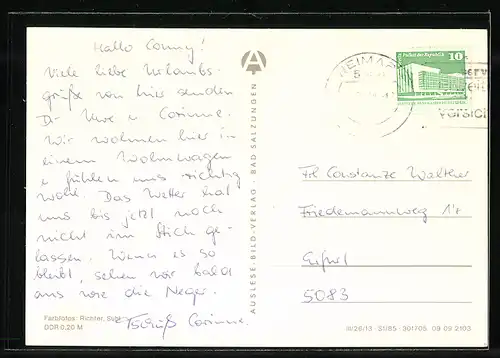 Hallo Conny!
Viele liebe Urlaubs-
grüße von hier senden
Dir Uwe u. Corinne.
Wir wohnen hier in
einem Wohnwagen
u fühlen uns richtig
wohl. Das Wetter hat
uns bis jetzt noch
nicht im Stich ge-
lassen. Wenn es so
bleibt, sehen wir bald
aus wie die Neger.
Tschüß Corinne.
Farbfotos: Richter, Suhl
DDR 0,20 M
AUSLESE-BILD-VERLAG · BAD SALZUNGEN
WEIMAR
Palast der Republik
10
DDR
Frl Constanze Walther
Friedemannweg 17
Erfurt
5083
III/26/13 · 31/85 · 301705 09 09 2103